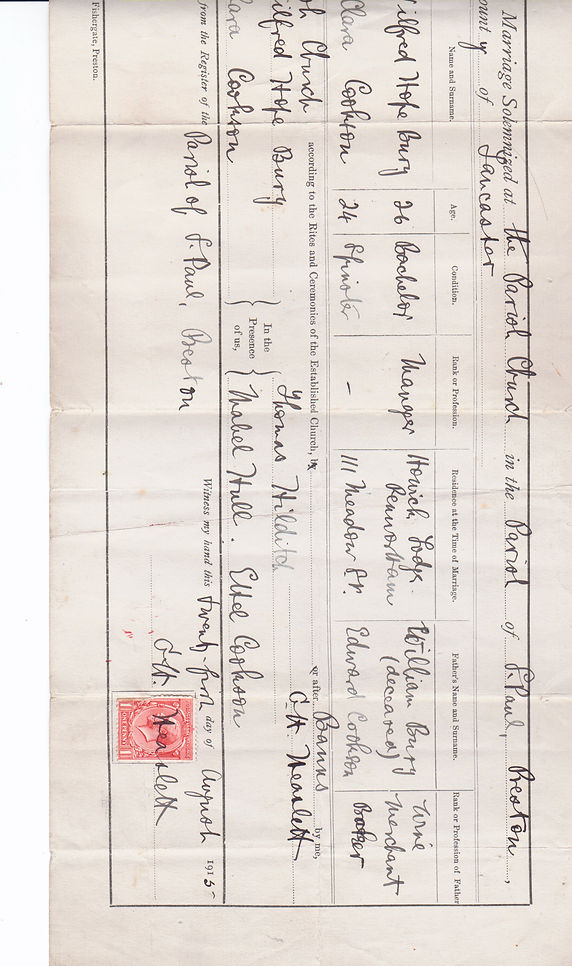 Marriage Solemnized at the Parish Church in the Parish of S. Paul, Preston,
ounty of Lancaster
Name and Surname. Age. Condition. Rank or Profession. Residence at the Time of Marriage. Father's Name and Surname. Rank or Profession of Father
ilfred Hope Bury 26 Bachelor Manger Howick Lodge. Penwortham William Bury (deceased) Wine Merchant
Clara Cookson 24 Spinster – 111 Meadow St. Edward Cookson Baker
sh Church according to the Rites and Ceremonies of the Established Church, by or after Banns by me,
ilfred Hope Bury In the Presence of us, Thomas Hilditch C H
lara Cookson Mabel Hull. Ethel Cookson
from the Register of the Parish of S. Paul, Preston
Witness my hand this Twenty-first day of August 1915
C.H.
ONE PENNY
Fishergate, Preston.